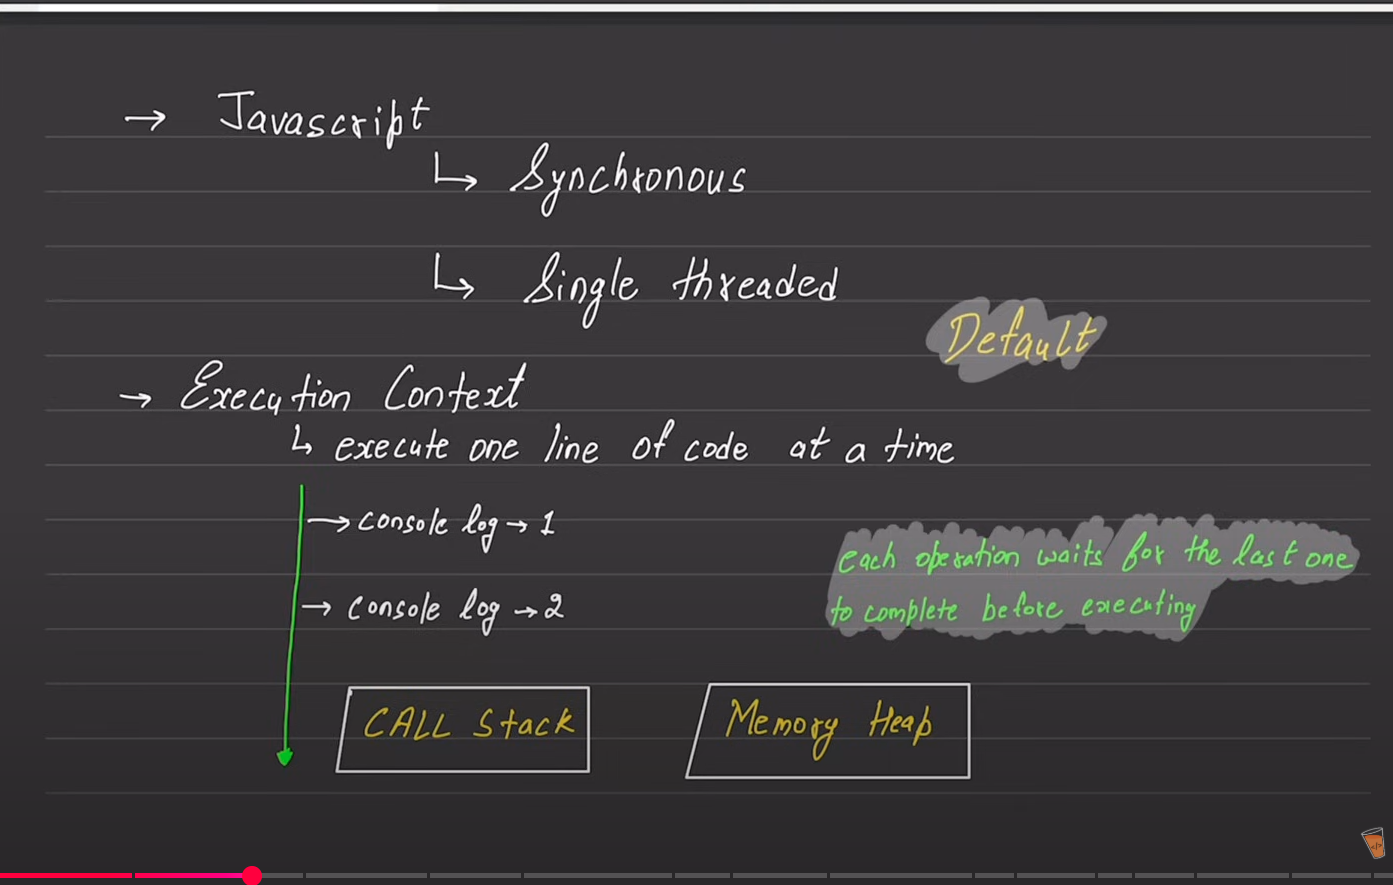 → Javascript
↳ Synchronous
↳ Single threaded
Default
→ Execution Context
↳ execute one line of code at a time
→ console log → 1
→ console log → 2
each operation waits for the last one
to complete before executing
CALL Stack
Memory Heap